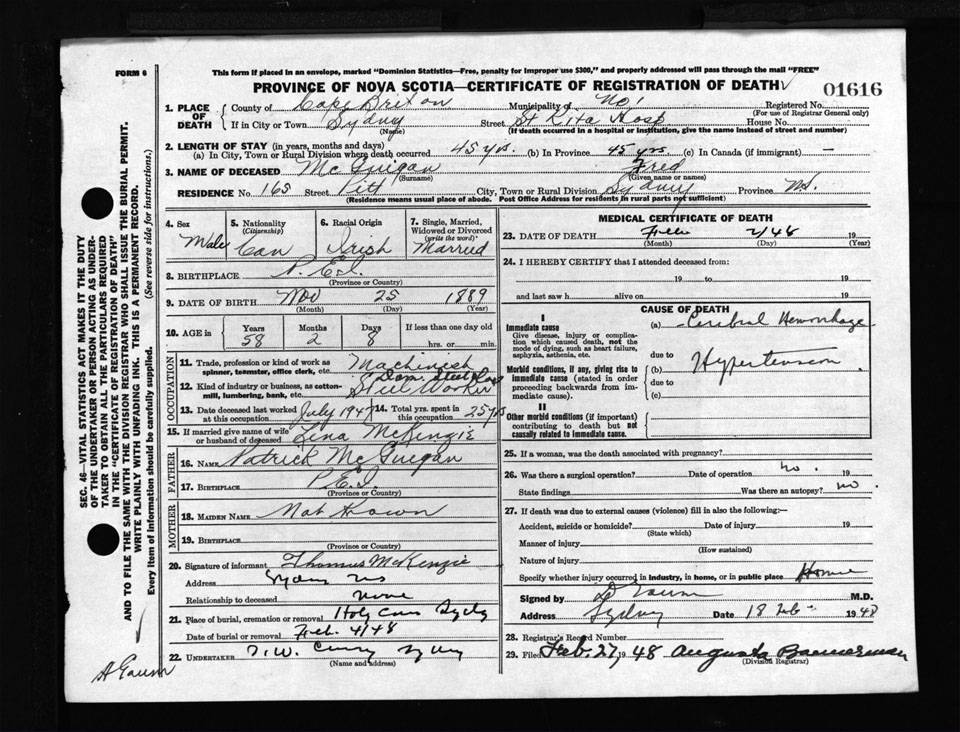 FORM 6
This form if placed in an envelope, marked "Dominion Statistics—Free, penalty for improper use $300," and properly addressed will pass through the mail "FREE"
PROVINCE OF NOVA SCOTIA—CERTIFICATE OF REGISTRATION OF DEATH
01616
1. PLACE OF DEATH County of Cape Briton Municipality of No 1 Registered No.
(For use of Registrar General only)
If in City or Town Sydney Street St Rita Hosp House No.
(Name) (If death occurred in a hospital or institution, give the name instead of street and number)
2. LENGTH OF STAY (in years, months and days)
(a) In City, Town or Rural Division where death occurred 45 yrs. (b) In Province 45 yrs. (c) In Canada (if immigrant) —
3. NAME OF DECEASED McGuigan Fred
(Surname) (Given name or names)
RESIDENCE No. 165 Street Pitt City, Town or Rural Division Sydney Province N.S.
(Residence means usual place of abode. Post Office Address for residents in rural parts not sufficient)
4. Sex Male
5. Nationality (Citizenship) Can
6. Racial Origin Irish
7. Single, Married, Widowed or Divorced (write the word) Married
8. BIRTHPLACE P.E.I.
(Province or Country)
9. DATE OF BIRTH Nov 25 1889
(Month) (Day) (Year)
10. AGE in Years Months Days If less than one day old
58 2 8 hrs. or min.
OCCUPATION
11. Trade, profession or kind of work as spinner, teamster, office clerk, etc. Machinist
12. Kind of industry or business, as cotton-mill, lumbering, bank, etc. Steel Worker
13. Date deceased last worked at this occupation July 1947
14. Total yrs. spent in this occupation 25 yrs
15. If married give name of wife or husband of deceased Lena McKenzie
FATHER
16. NAME Patrick McGuigan
17. BIRTHPLACE P.E.I.
(Province or Country)
MOTHER
18. MAIDEN NAME Not Known
19. BIRTHPLACE
(Province or Country)
20. Signature of informant Thomas McKenzie
Address Sydney NS
Relationship to deceased none
21. Place of burial, cremation or removal Holy Cross Sydney
Date of burial or removal Feb. 4/48
22. UNDERTAKER T.W. Curry Sydney
(Name and address)
MEDICAL CERTIFICATE OF DEATH
23. DATE OF DEATH Feb 2/48 19
(Month) (Day) (Year)
24. I HEREBY CERTIFY that I attended deceased from:
19 to 19
and last saw h alive on 19
CAUSE OF DEATH
I
Immediate cause
Give disease, injury or complication which caused death, not the mode of dying, such as heart failure, asphyxia, asthenia, etc.
(a) Cerebral Hemorrhage
due to
Morbid conditions, if any, giving rise to immediate cause (stated in order proceeding backwards from immediate cause).
(b) Hypertension
due to
(c)
II
Other morbid conditions (if important) contributing to death but not causally related to immediate cause.
25. If a woman, was the death associated with pregnancy?
26. Was there a surgical operation? no. Date of operation 19
State findings Was there an autopsy? no.
27. If death was due to external causes (violence) fill in also the following:—
Accident, suicide or homicide? Date of injury 19
(State which)
Manner of injury
(How sustained)
Nature of injury
Specify whether injury occurred in industry, in home, or in public place Home
Signed by M.D.
Address Sydney Date 18 Feb 1948
28. Registrar's Record Number
29. Filed Feb. 27, 1948 Augusta Bannerman
(Division Registrar)
SEC. 46—VITAL STATISTICS ACT MAKES IT THE DUTY
OF THE UNDERTAKER OR PERSON ACTING AS UNDER-
TAKER TO OBTAIN ALL THE PARTICULARS REQUIRED
IN THE "CERTIFICATE OF REGISTRATION OF DEATH"
AND TO FILE THE SAME WITH THE DIVISION REGISTRAR WHO SHALL ISSUE THE BURIAL PERMIT.
WRITE PLAINLY WITH UNFADING INK. THIS IS A PERMANENT RECORD.
Every item of Information should be carefully supplied. (See reverse side for instructions.)